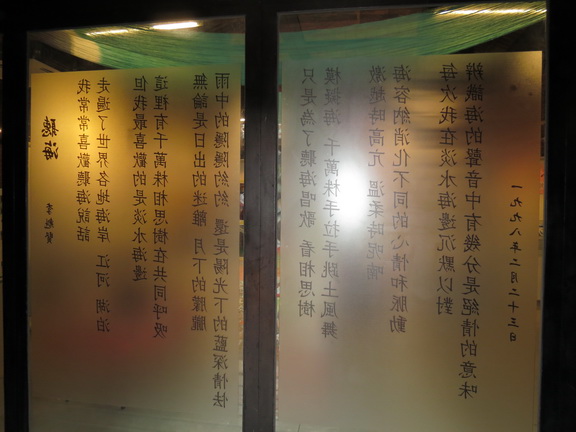 聽海
李魁賢
我常常喜歡聽海說話
走遍了世界各地海岸 江河 湖泊
但我最喜歡的是淡水海邊
這裡有千萬株相思樹在共同呼吸
無論是日出的迷離 月下的朦朧
雨中的隱隱約約 還是陽光下的藍深情怯
只是為了聽海唱歌 看相思樹
模擬海 千萬株手拉手跳土風舞
激越時高亢 溫柔時呢喃
海容納消化不同的心情和脈動
每次我在淡水海邊沉默以對
辨識海的聲音中有幾分是絕情的意味
一九九八年二月二十三日